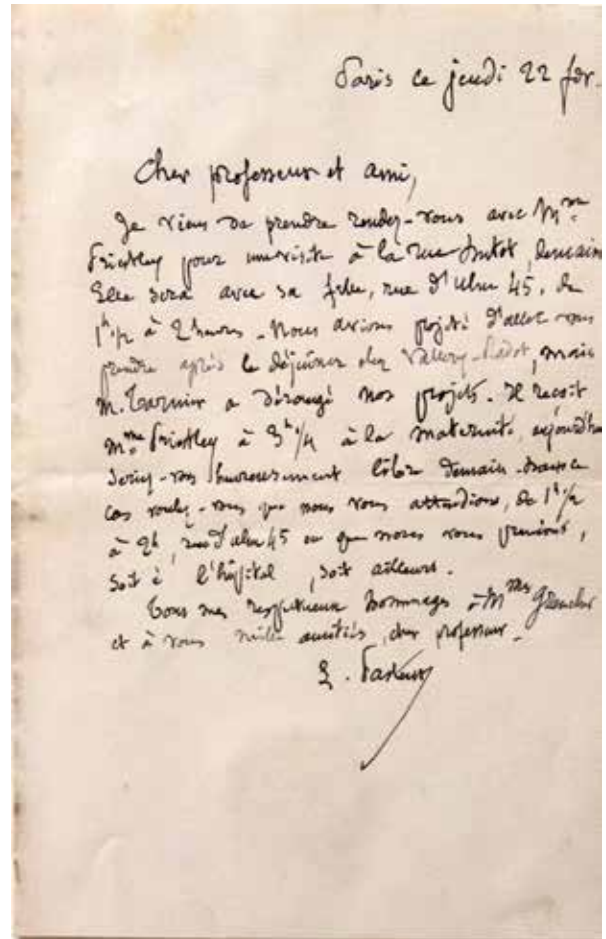 Paris ce jeudi 22 fév.
Cher professeur et ami,
Je viens de prendre rendez-vous avec Mme
Priestley pour une visite à la rue Dutot, demain
Elle sera avec sa fille, rue d'Ulm 45, de
1h 1/2 à 2 heures. Nous avions projeté d'aller vous
prendre après le déjeûner chez Vallery-Radot, mais
M. Tarnier a dérangé nos projets. Il reçoit
Mme Priestley à 3h 1/4 à la maternité, aujourd'hui
Seriez-vous heureusement libre demain. Dans ce
cas voulez-vous que nous vous attendions, de 1h 1/2
à 2h, rue d'Ulm 45 ou que nous vous prenions,
soit à l'hôpital, soit ailleurs.
Tous mes respectueux hommages à Mme Grancher
et à vous mille amitiés, cher professeur.
L. Pasteur